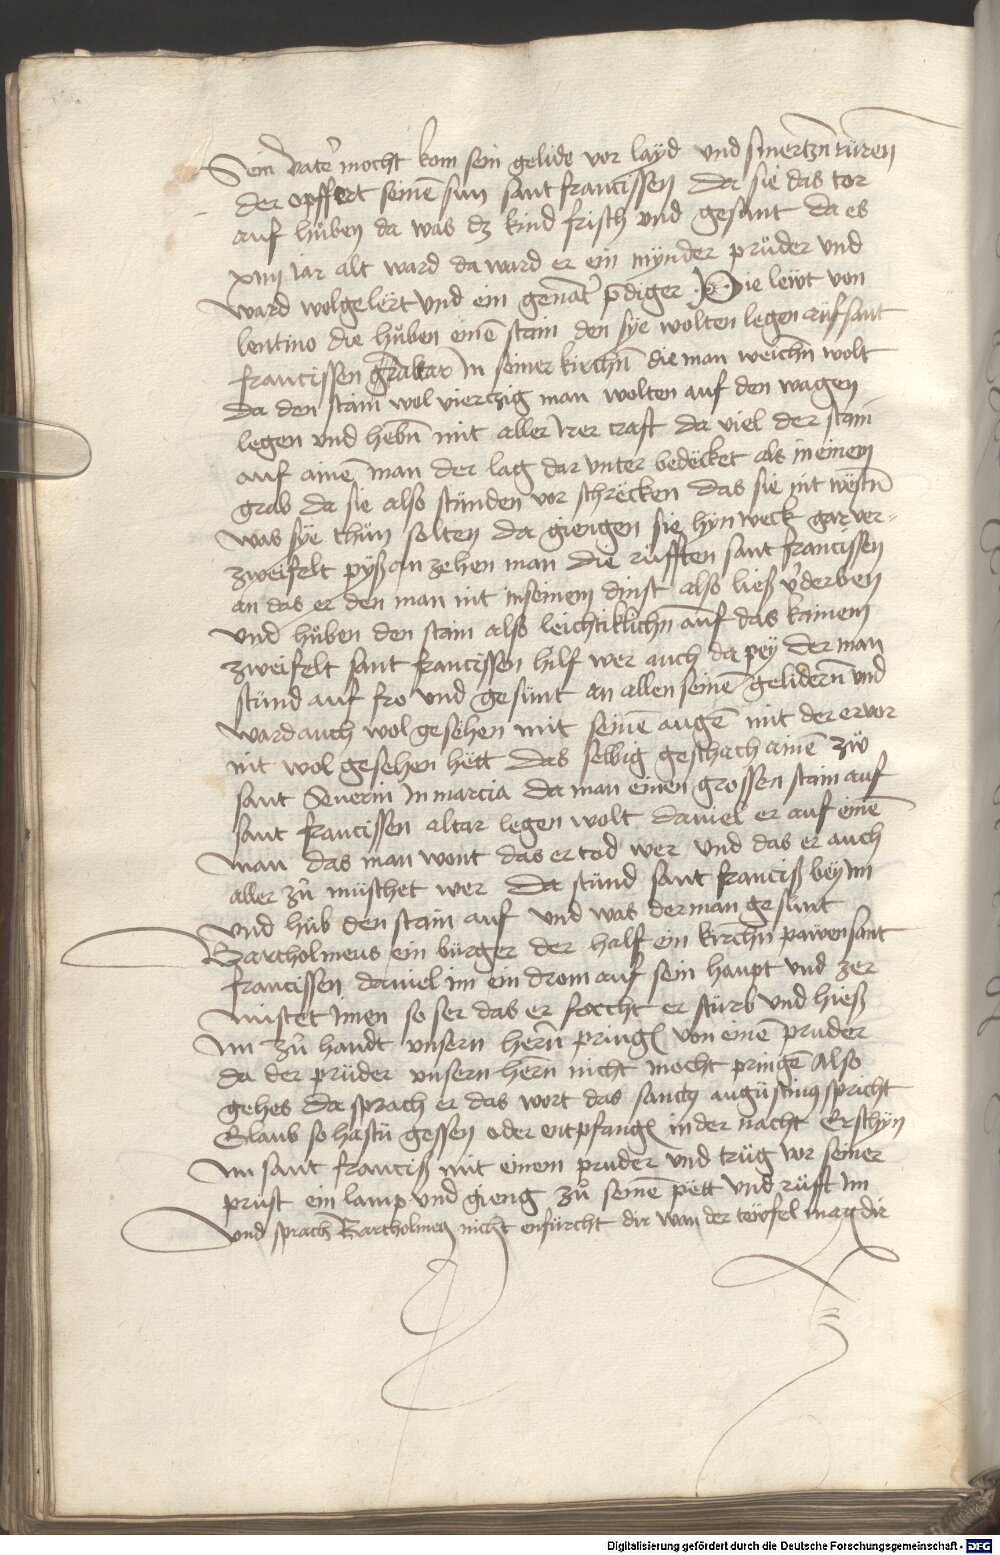 Sein vater mocht kom sein gelide vor layd und smertzn rüren
der opffert seinē sun sant francissen Da sie das tor
auf hůben da was dz kind frisch und gesunt da es
xiiii iar alt ward da ward er ein mynder průder und
ward wolgelert und ein genāt p̄diger Die lewt von
lentino die hůben einē stain den sye wolten legen auf sant
francissen altar in seiner kirchn̄ die man weichn̄ wolt
Da den stain wol vierczig man wolten auf den wagen
legen und hebn̄ mit aller irer craft da viel der stain
auf ainē man der lag dar unter bedecket als in einem
grab da sie also stünden vor schrecken das sie nit westn̄
was sye thůn solten da giengen sie hyn weck gar ver=
zweifelt pyß an zehen man die rüfften sant francissen
an das er den man nit in seinem dinst also ließ v̄derben
und hůben den stain also leichtiklichn̄ auf das kainem
zweifelt sant francissen hilf wer auch da pey der man
stünd auf fro und gesünt an allen seinē gelidern̄ und
ward auch wol gesehen mit seinē augē mit der er vor
nit wol gesehen hett das selbig geschach ainē zů
sant Severin in marcia da man einen grossen stain auf
sant francissen altar legen wolt da viel er auf einē
man das man wont das er tod wer und das er auch
aller zů müschet wer Da stünd sant franciß bey im
und hůb den stain auf und was der man gesünt
Bartholmeus ein bürger der half ein kirchn̄ pawen sant
francissen da viel im ein drom auf sein haupt und zer
mistet imen so ser das er forcht er stürb und hieß
im zů handt unsern hern̄ pringē von einē pruder
da der prüder unsern hern̄ nicht mocht pringē Also
gehes da sprach er das wort das sanctꝫ augüstinꝯ spricht
Glaub so hastu gessen oder entpfangē in der nacht Erschyn
im sant franciß mit einem pruder und trüg vor seiner
prüst ein lamp und gieng zů seinē pett und rüfft im
und sprach Bartholmeꝫ nicht enfürcht dir wan der tewfel mag dir
Digitalisierung gefördert durch die Deutsche Forschungsgemeinschaft - DFG